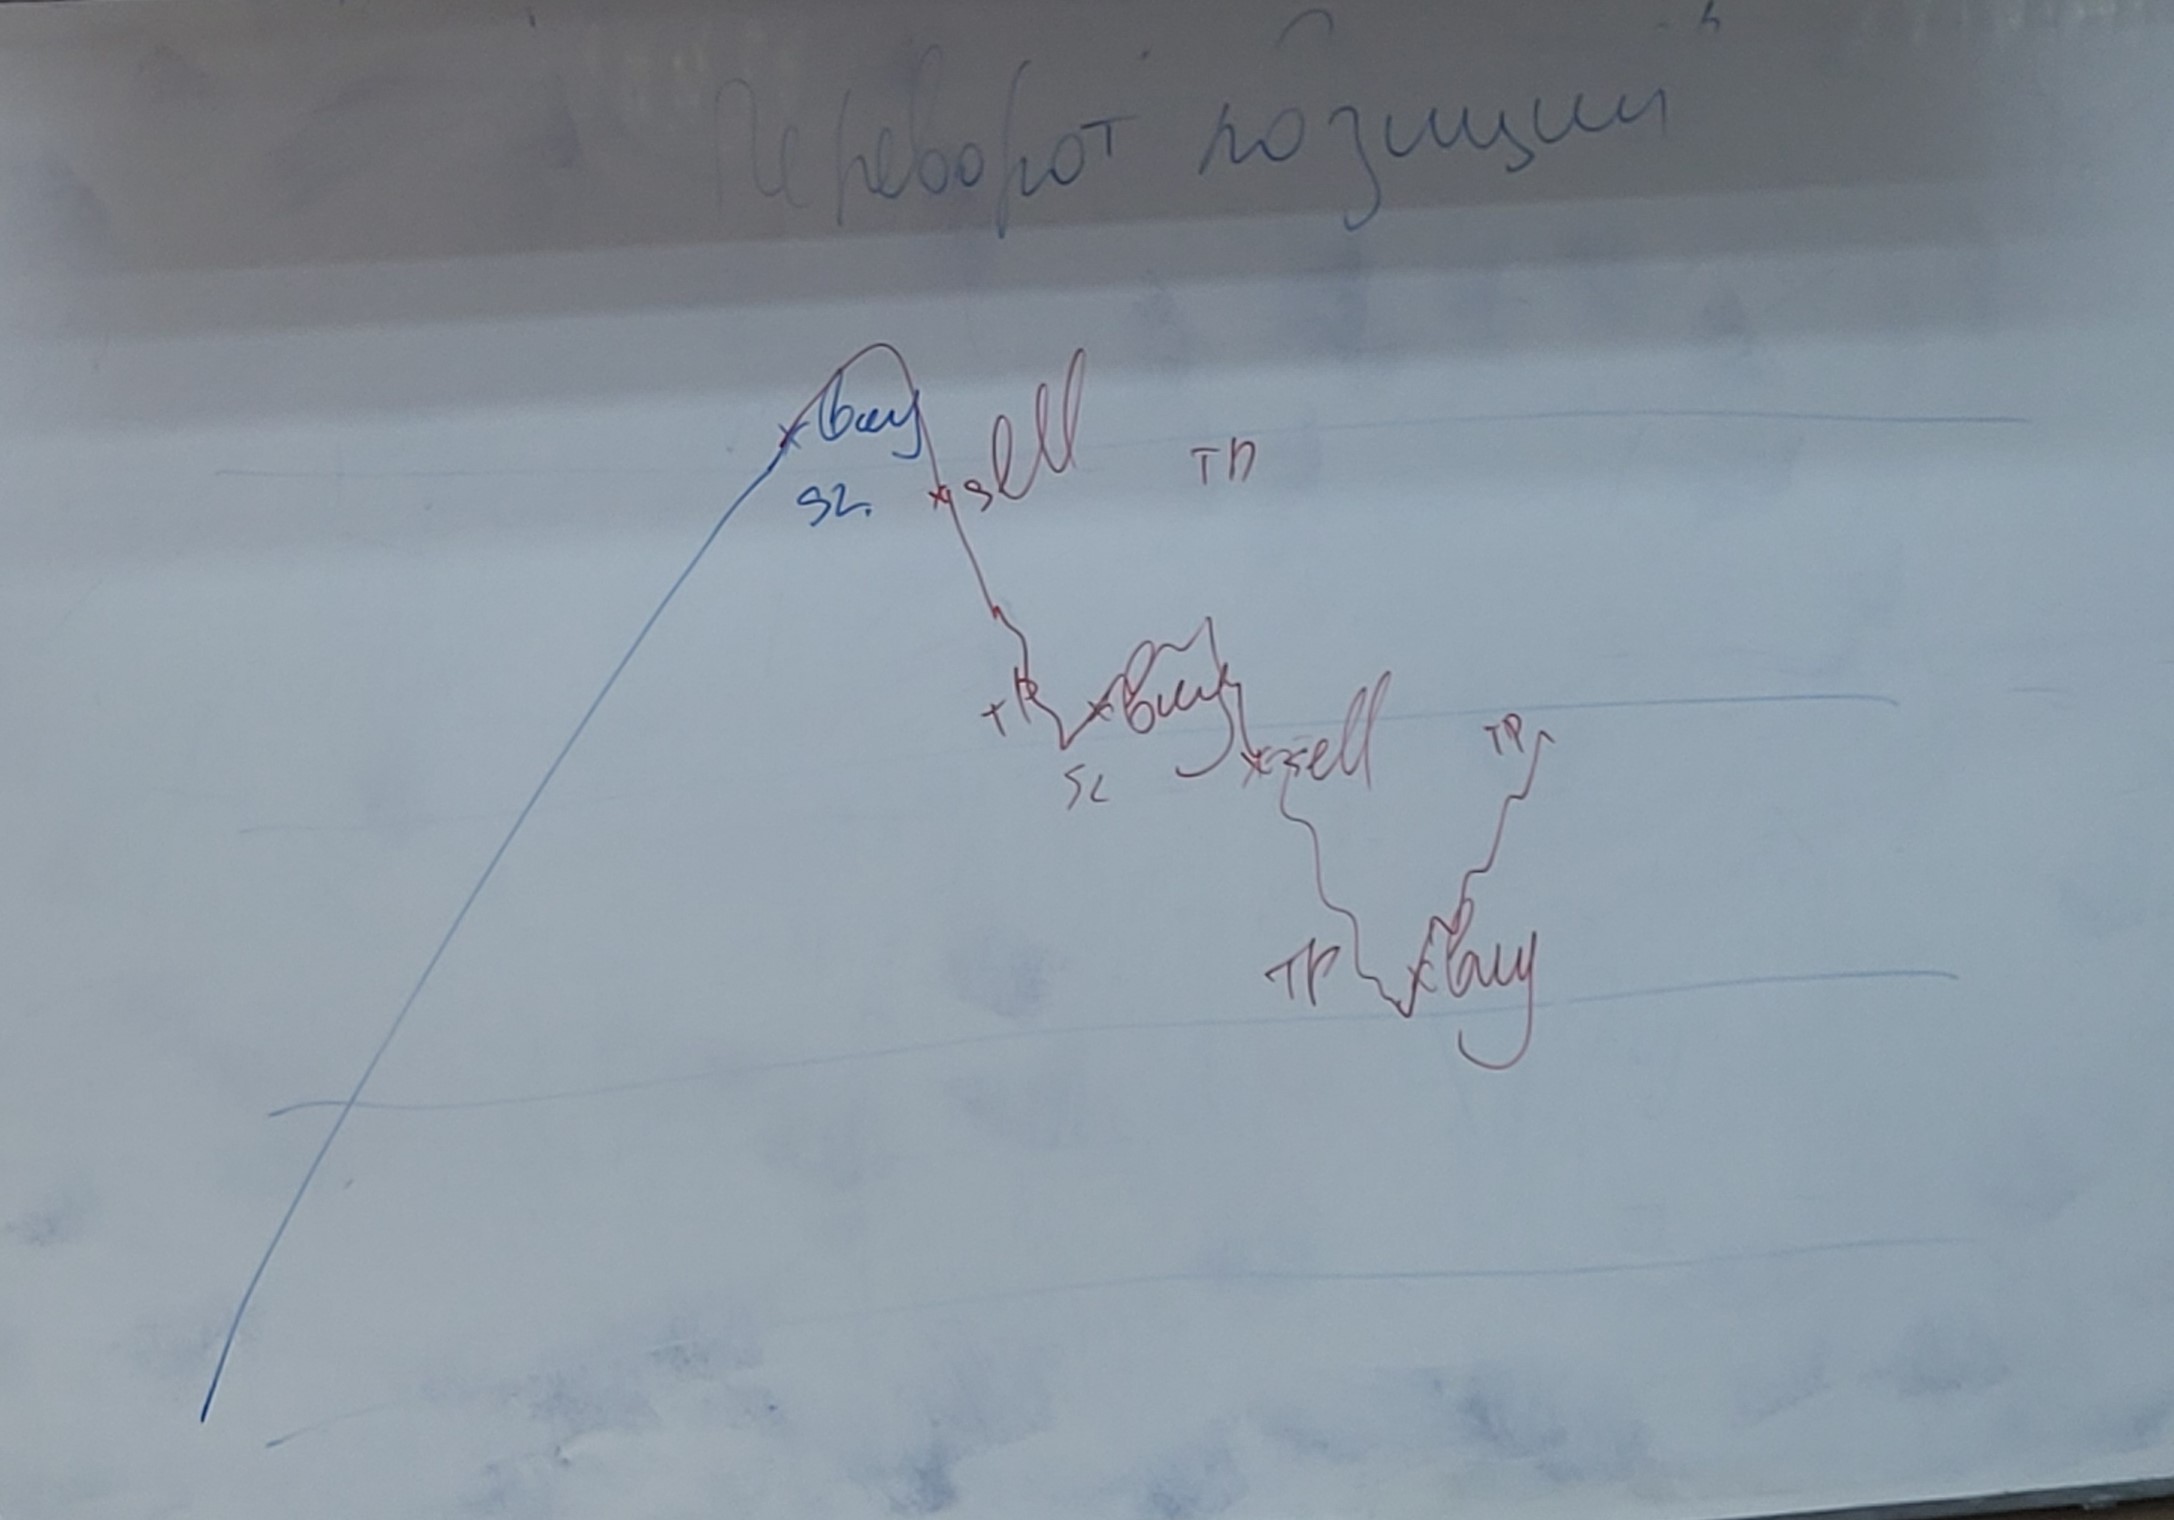 Переворот позиции
buy
sell
TП
SL
TP
buy
sell
TP
SL
TP
buy